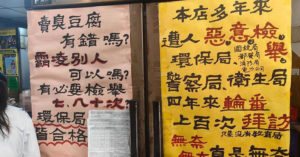 賣臭豆腐
有錯嗎?
霸凌別人
可以嗎?
有必要檢舉
七、八十次
環保局
皆合格
本店多年來
遭人惡意檢舉
環保局、
警察局、衛生局
四年來輪番
上百次拜訪
無奈
真是無奈